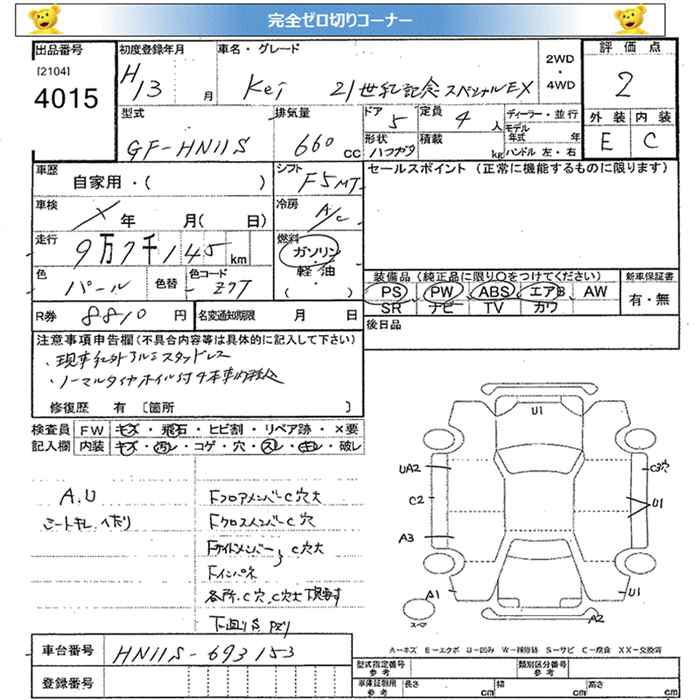 完全ゼロ切りコーナー
出品番号 初度登録年月 車名・グレード 2WD・4WD 評価点
[2104]
4015 H13 月 Kei 21世紀記念スペシャルEX 2
型式 排気量 ドア 定員 ディーラー・並行 外装 内装
GF-HN11S 660 CC 5 4 人 モデル年式 年 E C
形状 積載 kg ハンドル 左・右
車歴 自家用・( ) シフト F5MT セールスポイント (正常に機能するものに限ります)
車検 年 月( 日) 冷房 A/C
走行 9万7千145 km 燃料 ガソリン・軽油・( )
色 パール 色替 色コード Z7T
装備品 (純正品に限り○をつけてください) 新車保証書
PS PW ABS エアB AW 有・無
SR ナビー TV カワ
R券 8810 円 名変通知期限 月 日 後日品
注意事項申告欄 (不具合内容等は具体的に記入して下さい)
・ノーマルタイヤホイル付4本車内積込
修復歴 有 [箇所 ]
検査員 FW キズ・飛石・ヒビ割・リペア跡・×要
記入欄 内装 キズ・汚レ・コゲ・穴・スレ・キレ・破レ
U1
UA2 C3穴
C2 U1
A3
A1 U1
A2
A.U Fフロアメンバー C穴大
シートキレ、ヘタリ Fクロスメンバー C穴
Fサイドメンバー C穴大
Fインパネ
各所、C穴、C穴大
下廻りS
A-キズ E-エクボ U-凹み W-補修跡 S-サビ C-腐食 XX-交換済
車台番号 HN11S-693153
型式指定番号 参考 類別区分番号 参考
登録番号 車庫証明用 参考 長さ cm 幅 cm 高さ cm